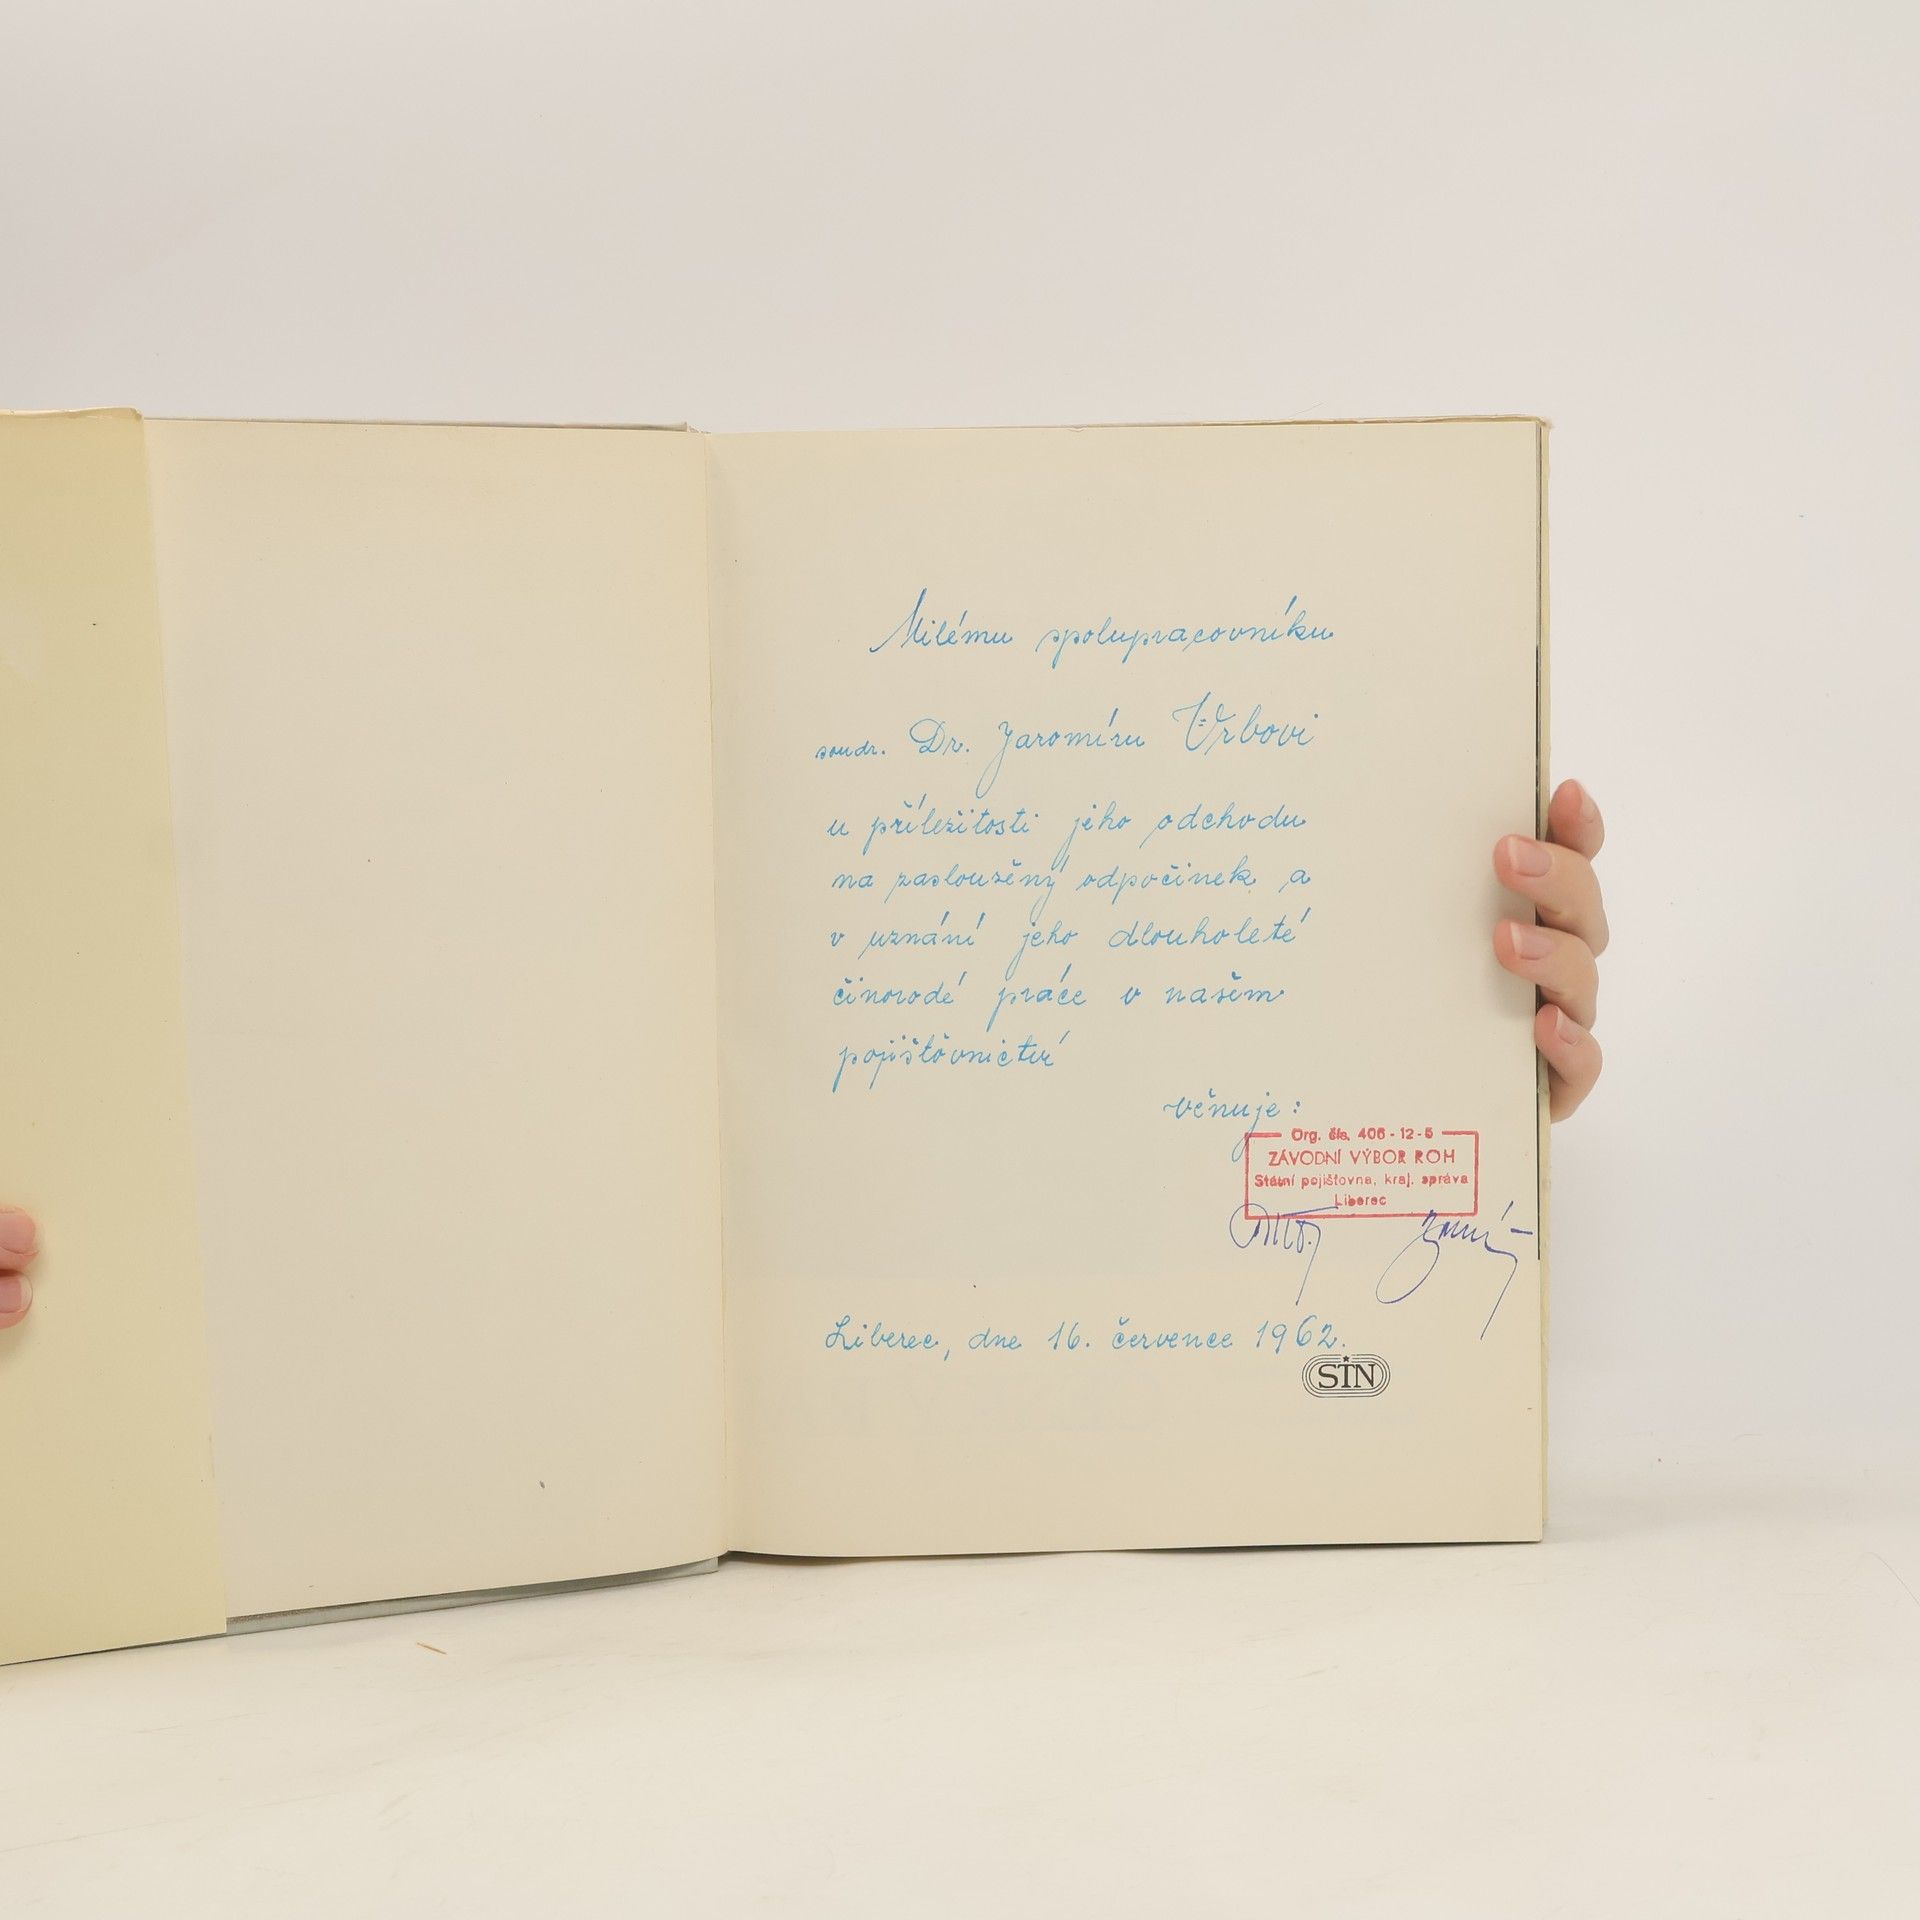 Milému spolupracovníku
soudr. Dr. Jaromíru Vrbovi
u příležitosti jeho odchodu
na zasloužený odpočinek a
v uznání jeho dlouholeté
činorodé práce v našem
pojišťovnictví
věnuje:
Org. čís. 406-12-5
ZÁVODNÍ VÝBOR ROH
Státní pojišťovna, kraj. správa
Liberec
Liberec, dne 16. července 1962.
STN